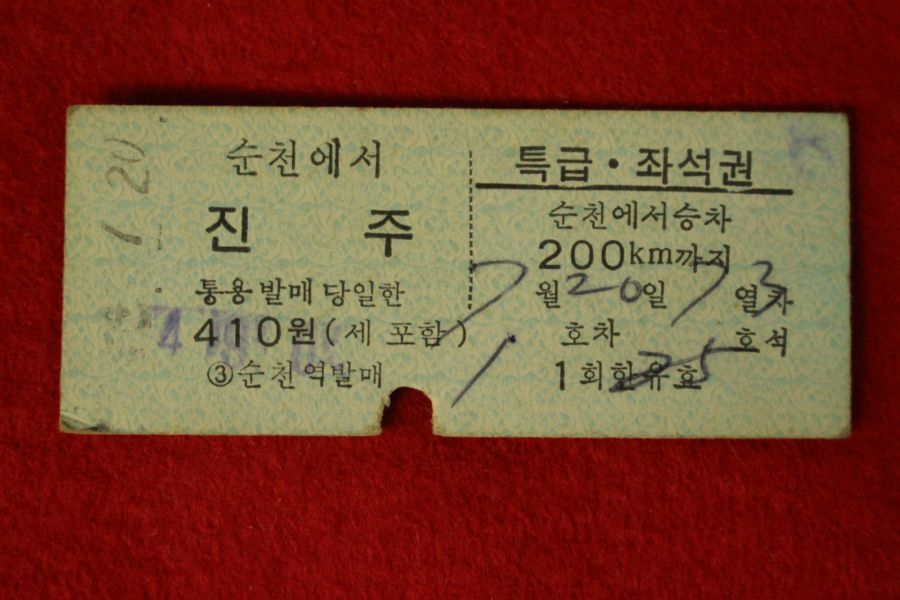 순천에서
진 주
통용발매당일한
410원(세 포함)
③순천역발매
특급·좌석권
순천에서승차
200km까지
7월 20일 73열차
1호차 25호석
1회한유효